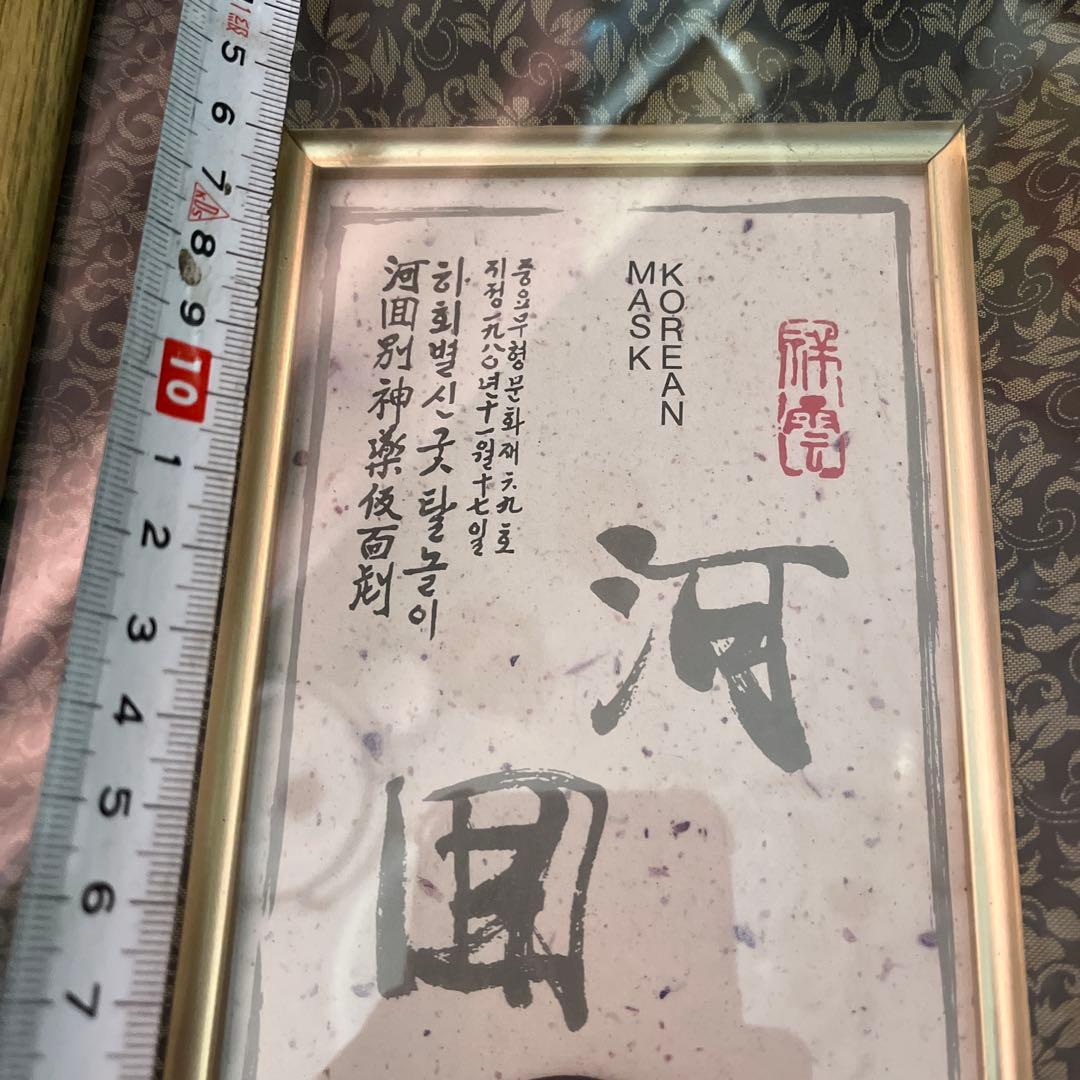 祥雲
KOREAN
MASK
河回
중요무형문화재六九호
지정一九八〇년十一월十七일
하회별신굿탈놀이
河回別神樂仮面劇
級
5 6 7 8 9 10 1 2 3 4 5 6 7
KDS